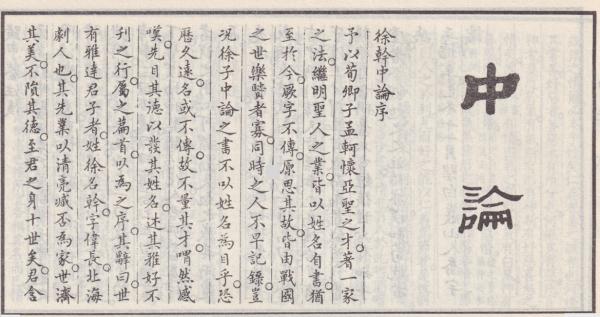 中論
徐幹中論序
予以荀卿子孟軻懷亞聖之才著一家
之法。繼明聖人之業。皆以姓名自書。猶
至於今。厥字不傳。原思其故。皆由戰國
之世。樂賢者寡。同時之人。不早記錄。豈
况徐子中論之書。不以姓名為目乎。恐
歷久遠。名或不傳。故不量其才。喟然感
嘆。先目其德。以發其姓名。述其雅好不
刊之行。屬之篇首。以為之序。其辭曰。世
有雅達君子者。姓徐名幹。字偉長。北海
劇人也。其先業以清亮臧否為家。世濟
其美。不隕其德。至君之身十世矣。君含